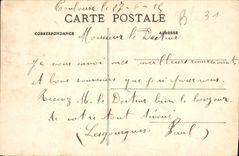 Toulouse le 27-6-18
CARTE POSTALE
B 31
CORRESPONDANCE ADRESSE
Monsieur le Docteur
Je vous envoi mes meilleurs remerciements
et bons souvenirs que j'ai pour vous.
Recevez M. le Docteur bien le bonjour
de votre tout dévoué
Lesgourgues Paul